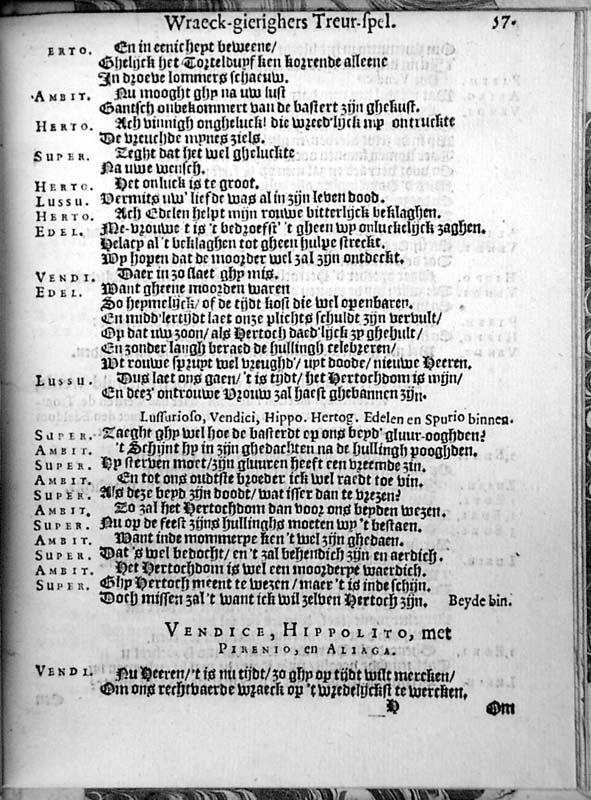 Wraeck-gierighers Treur-spel. 57.
ERTO. En in eenicheyt beweene/
Ghelijck het Tortelduyf ken korrende alleene
In droeve lommers schaeuw.
AMBIT. Nu mooght ghy na uw lust
Gantsch onbekommert van de bastert zijn ghekust.
HERTO. Ach vinnigh ongheluck! die wreed'lijck my ontruckte
De vreuchde mynes ziels.
SUPER. Zeght dat het wel gheluckte
Na uwe wensch.
HERTO. Het onluck is te groot.
LUSSU. Vermits uw' liefde was al in zijn leven dood.
HERTO. Ach Edelen helpt mijn rouwe bitterlijck beklaghen.
EDEL. Me-vrouwe t is 't bedroefst' 't gheen wy onluckelijck zaghen.
Helacy al 't beklaghen tot gheen hulpe streckt.
Wy hopen dat de moorder wel zal zijn ontdeckt.
VENDI. Daer in zo slaet ghy mis.
EDEL. Want gheene moorden waren
So heymelijck/ of de tijdt kost die wel openbaren.
En midd'lertijdt laet onze plichts schuldt zijn vervult/
Op dat uw zoon/ als Hertoch daed'lijck zy ghehult/
En zonder langh beraed de hullingh celebreren/
Wt rouwe spruyt wel vreughd'/ uyt doode/ nieuwe Heeren.
LUSSU. Dus laet ons gaen/ 't is tijdt/ het Hertochdom is mijn/
En deez' ontrouwe Vrouw zal haest ghebannen zijn.
Lussurioso, Vendici, Hippo. Hertog. Edelen en Spurio binnen.
SUPER. Zaeght ghy wel hoe de basterdt op ons beyd' gluur-ooghden?
AMBIT. 't Schijnt hy in zijn ghedachten na de hullingh pooghden.
SUPER. Hy sterven moet/ zijn gluuren heeft een vreemde zin.
AMBIT. En tot ons oudtste broeder ick wel raedt toe vin.
SUPER. Als deze beyd zijn doodt/ wat isser dan te vrezen?
AMBIT. Zo zal het Hertochdom dan voor ons beyden wezen.
SUPER. Nu op de feest zijns hullinghs moeten wy 't bestaen.
AMBIT. Want inde mommerye ken 't wel zijn ghedaen.
SUPER. Dat 's wel bedocht/ en 't zal behendich zijn en aerdich.
AMBIT. Het Hertochdom is wel een moorderye waerdich.
SUPER. Ghy Hertoch meent te wezen/ maer 't is inde schijn.
Doch missen zal 't want ick wil zelven Hertoch zijn. Beyde bin.
VENDICE, HIPPOLITO, met
PIRENIO, en ALIAGA.
VENDI. Nu Heeren/ 't is nu tijdt/ zo ghy op tijdt wilt mercken/
Om ons rechtvaerde wraeck op 't wredelijckst te wercken.
H Om